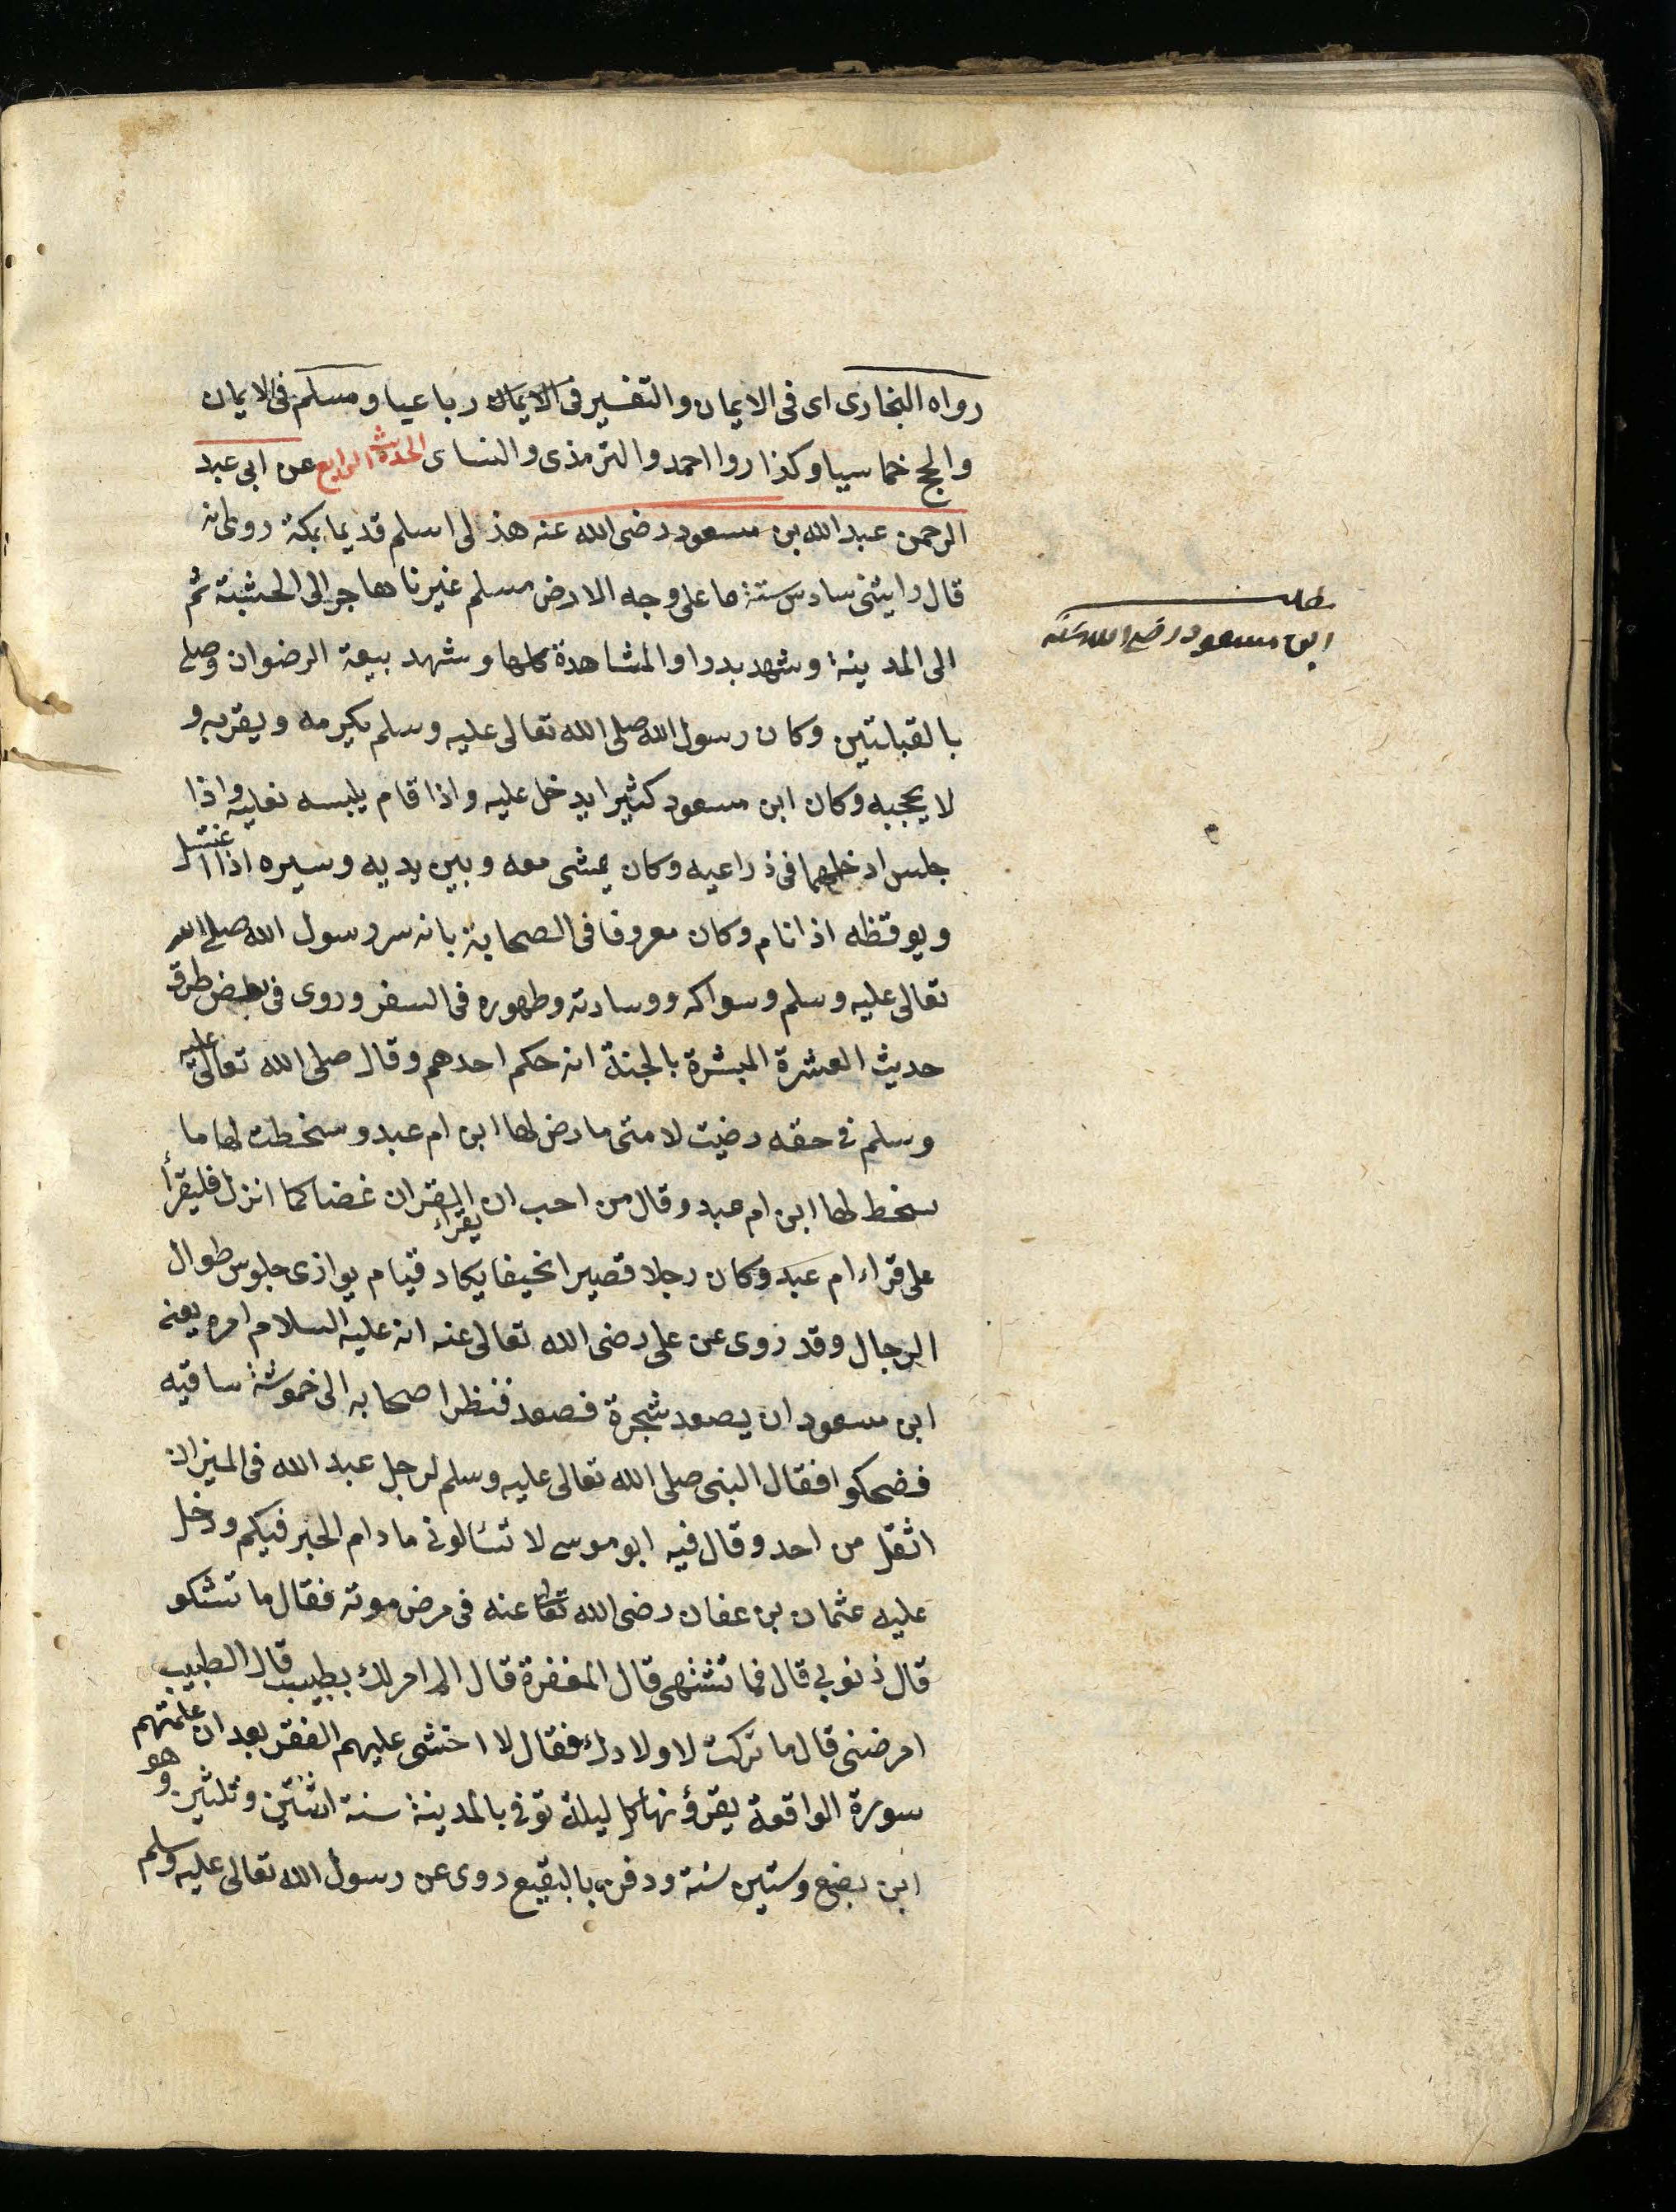 رواه البخارى اى فى الايمان والتفسير فى الايمان رباعيا ومسلم فى الايمان
والحج خماسيا وكذا روا احمد والترمذى والنساى الحديث الرابع عن ابى عبد
الرحمن عبد الله بن مسعود رضى الله عنه هذلى اسلم قديما بمكة روى انه
قال رايتنى سادس ستة ما على وجه الارض مسلم غيرنا هاجر الى الحشبة ثم
الى المدينة وشهد بدرا والمشاهدة كلها وشهد بيعة الرضوان وصلى
بالقبلتين وكان رسول الله صلى الله تعالى عليه وسلم يكرمه ويقربه و
لا يحجبه وكان ابن مسعود كثيرا يدخل عليه واذا قام يلبسه نعليه واذا
جلس ادخلهما فى ذراعيه وكان يمشى معه وبين يديه وسيره اذا اغتسل
ويوقظه اذا نام وكان معروفا فى الصحابة بانه سر رسول الله صلى الله
تعالى عليه وسلم وسواكه ووسادته وطهوره فى السفر وروى فى بعض طرق
حديث العشرة المبشرة بالجنة انه حكم احدهم وقال صلى الله تعالى عليه
وسلم فى حقه رضيت لامتى ما رض لها ابن ام عبد وسخطت لها ما
سخط لها ابن ام عبد وقال من احب ان يقرأ القران غضا كما انزل فليقرأ
على قراء ام عبد وكان رجلا قصيرا نحيفا يكاد قيام يوازى جلوس طوال
الرجال وقد روى عن على رضى الله تعالى عنه انه عليه السلام امره يعنى
ابن مسعود ان يصعد شجرة فصعد فنظر اصحابه الى خموشة ساقيه
فضحكوا فقال النبى صلى الله تعالى عليه وسلم لرجل عبد الله فى الميزان
اثقل من احد وقال فيه ابو موسى لا تسالونى ما دام الحبر فيكم ودخل
عليه عثمان بن عفان رضى الله تعالى عنه فى مرض موته فقال ما تشكو
قال ذنوبى قال فما تشتهى قال المغفرة قال الا امر لك بطبيب قال الطبيب
امرضنى قال ما تركت لاولادك فقال لا اخشى عليهم الفقر بعد ان علمتهم
سورة الواقعة يقرؤنها كل ليلة توفى بالمدينة سنة اثنتين وثلثين وهو
ابن بضع وستين سنة ودفن بالبقيع روى عن رسول الله تعالى عليه وسلم
مطلب
ابن مسعود رضى الله عنه